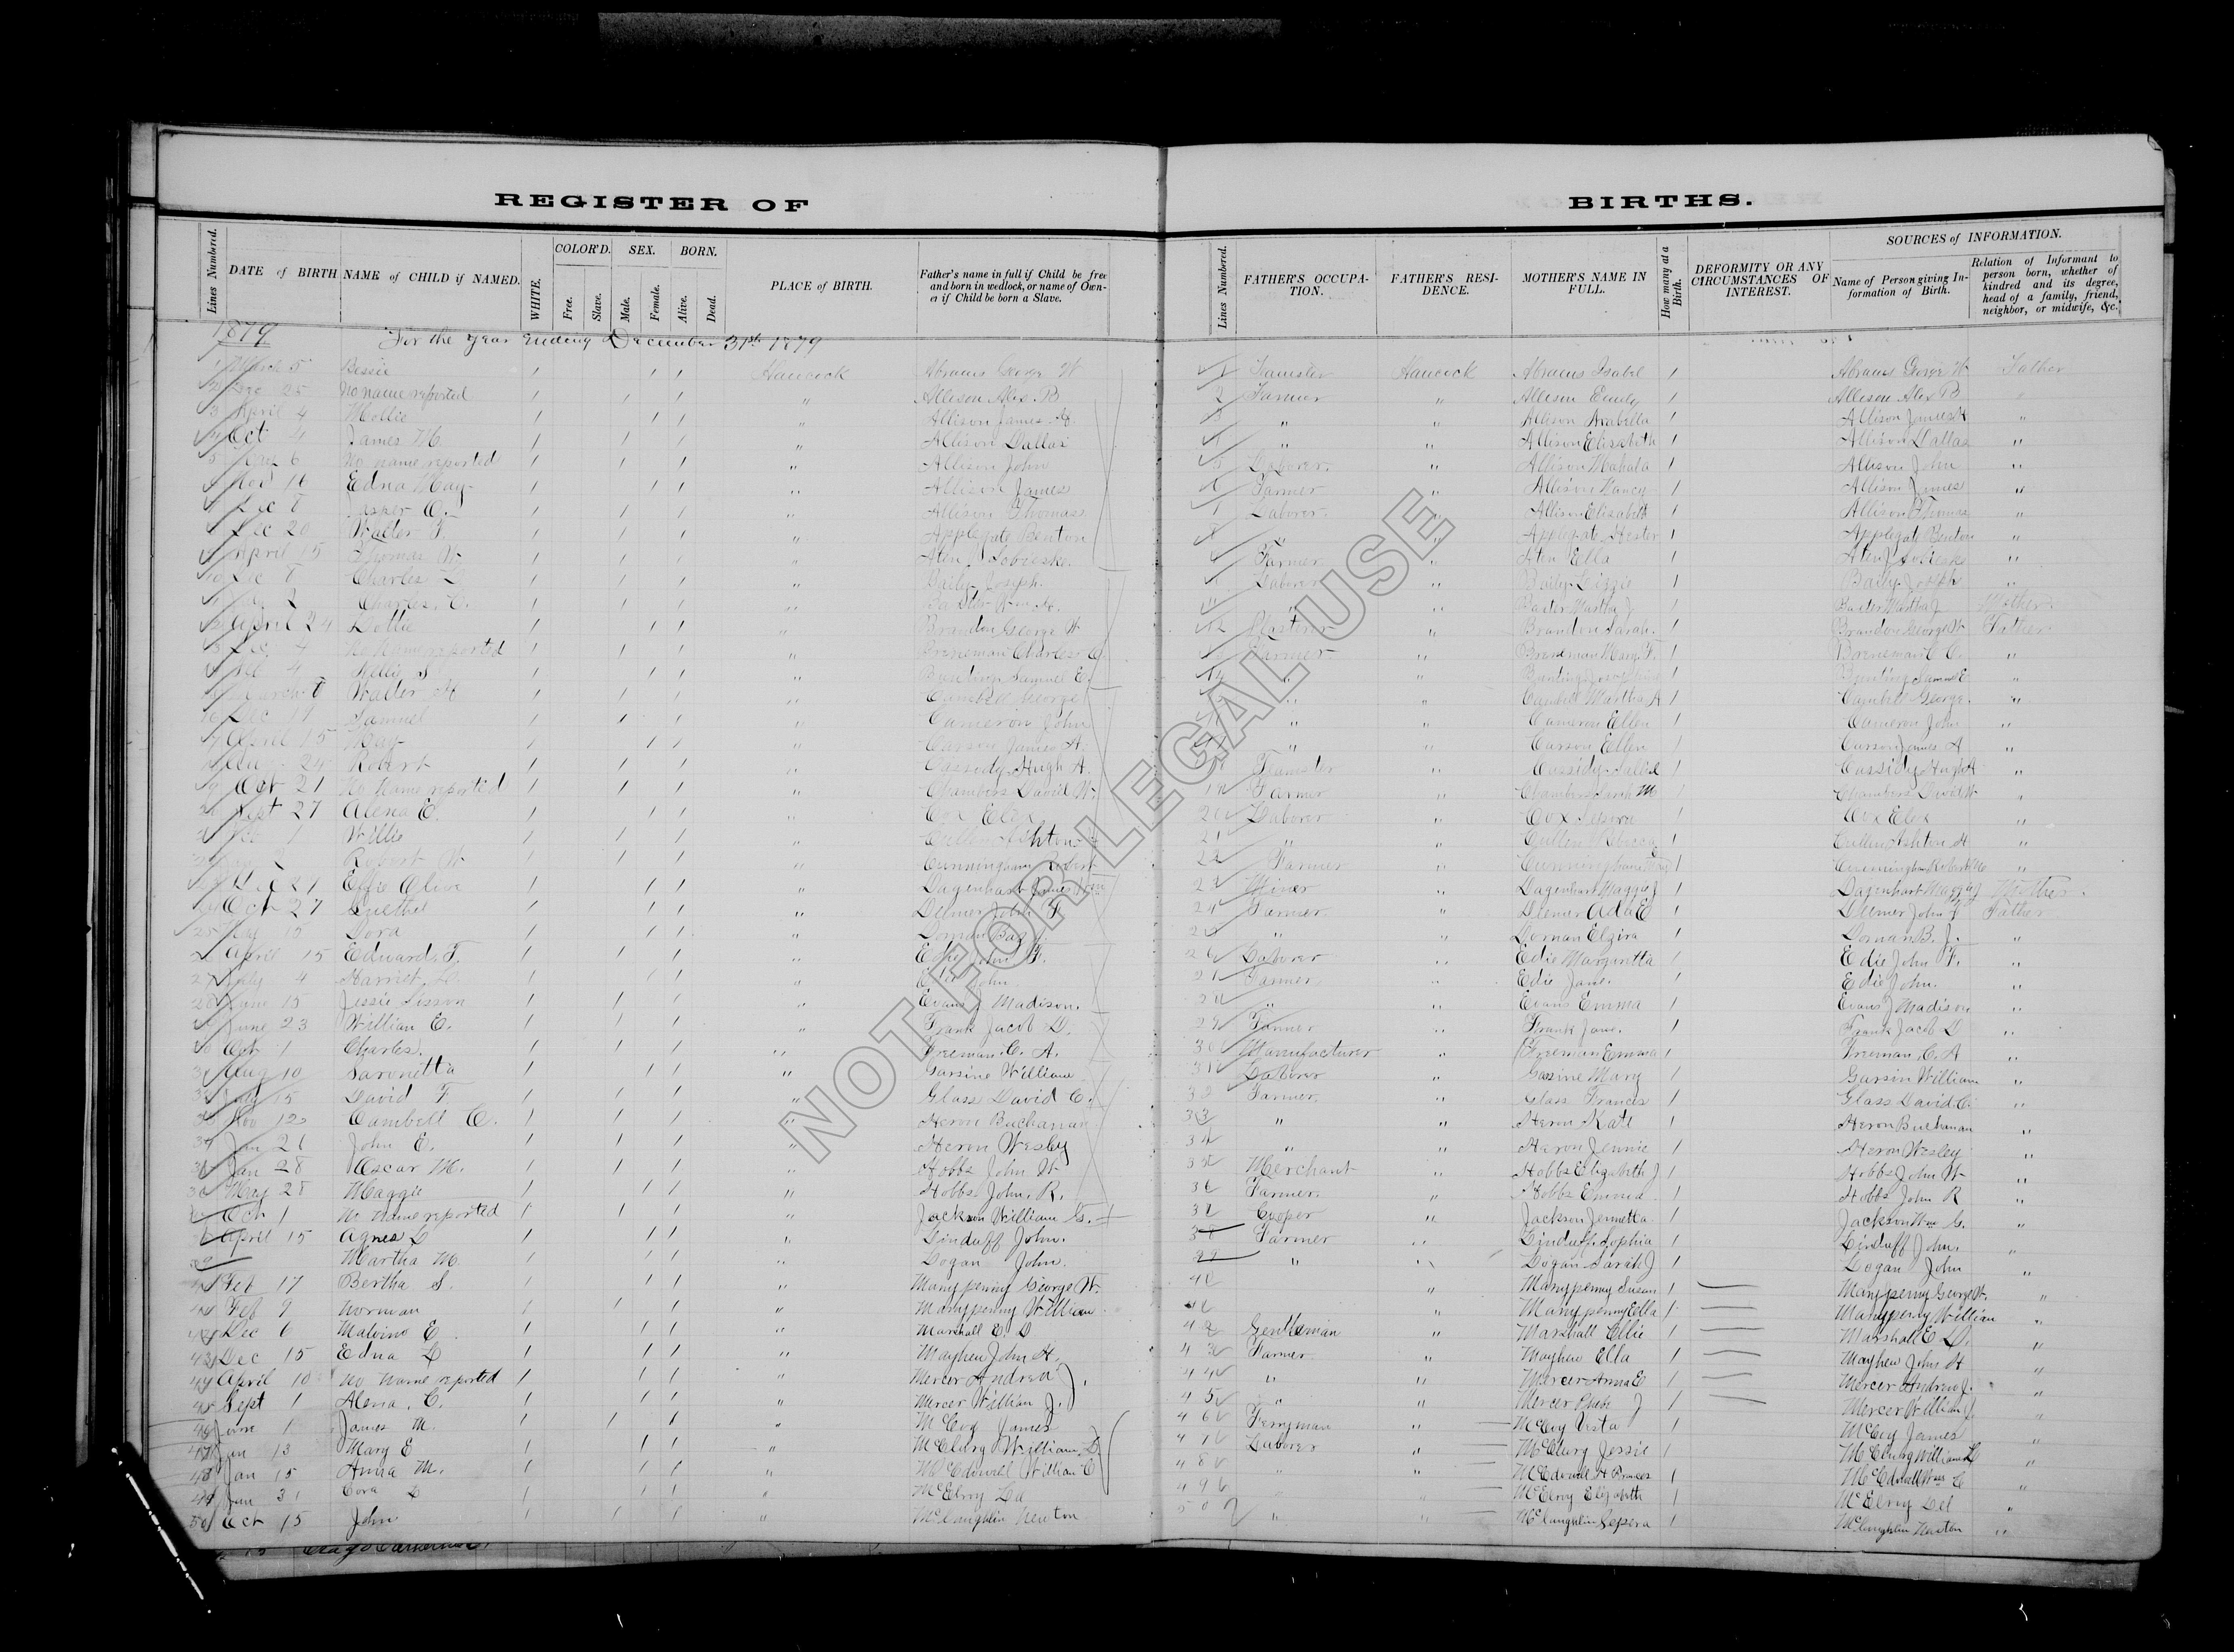 REGISTER OF BIRTHS.
Lines Numbered. DATE of BIRTH NAME of CHILD if NAMED. WHITE. COLOR'D. Free. Slave. SEX. Male. Female. BORN. Alive. Dead. PLACE of BIRTH. Father's name in full if Child be free and born in wedlock, or name of Owner if Child be born a Slave. Lines Numbered. FATHER'S OCCUPATION. FATHER'S RESIDENCE. MOTHER'S NAME IN FULL. How many at a Birth. DEFORMITY OR ANY CIRCUMSTANCES OF INTEREST. SOURCES of INFORMATION. Name of Person giving Information of Birth. Relation of Informant to person born, whether of kindred and its degree, head of a family, friend, neighbor, or midwife, &c.
1879 For the year Ending December 31st 1879
1 March 5 Bessie Hancock Abrams George W 1 Hancock Abrams Isabel 1 Abrams George W Father
2 Dec 25 No name reported " Allison Alex. B 2 Farmer " Allison Emily 1 Allison Alex B "
3 April 4 Mollie " Allison James H. 3 " " Allison Arabella 1 Allison James H "
4 Oct 4 James " Allison Dallas 4 " " Allison Elizabeth 1 Allison Dallas "
5 6 No name reported " Allison John 5 Laborer " Allison Mahala 1 Allison John "
Nov 16 Edna May " Allison James 6 Farmer " Allison Nancy 1 Allison James "
Dec 8 Jasper O. " Allison Thomas Laborer " Allison Elizabeth 1 Allison Thomas "
Dec 20 Walter F. " Applegate Benton 8 " " Applegate Hester 1 Applegate Benton "
April 15 Thomas W " Aten Sobieski Farmer " Aten Ella 1 Aten "
10 Dec 8 Charles L " Baily Joseph. Laborer " Baily Lizzie 1 Baily Joseph "
2 Charles C. " " " Baxter Martha J 1 Baxter Martha J Mother
April 24 Dottie " Brandon George W 12 Plasterer " Brandon Sarah. 1 Brandon George W Father
4 No Name reported " Breneman Charles C. Farmer " Breneman Mary F. 1 "
4 Nellie S " Bunting Samuel E. 14 " " Bunting 1 Bunting Samuel E "
March 8 Walter H " Cambell George " " Cambell Martha A 1 Cambell George. "
Dec 19 Samuel " Cameron John " " Cameron Ellen 1 Cameron John "
April 15 May " Carson James A. " " Carson Ellen 1 Carson James A "
Aug 24 Robert " Cassidy Hugh A. Teamster " Cassidy 1 Cassidy Hugh A "
Oct 21 No Name reported " Chambers David W. 19 Farmer " Chambers Sarah M 1 Chambers David W "
27 Alena E. " Cox Elex. 20 Laborer " Cox 1 Cox Elex "
1 Willie " Cullen Ashton 21 " " Cullen Rebecca 1 Cullen Ashton H "
Robert W " Cunningham Robert 22 Farmer " Cunningham 1 Cunningham Robert "
Dec 29 Effie Olive " Dagenhart James 23 Miner " Dagenhart Maggie J 1 Dagenhart Maggie J Mother.
Oct 27 " Deemer John F 24 Farmer " Deemer Ada E 1 Deemer John F Father
25 15 Dora " Dornan 25 " " Dornan Elzira 1 Dornan B. J. "
April 15 Edward. F. " Edie John F. 26 Laborer " Edie Margaretta 1 Edie John F. "
27 July 4 Harriet " Edie John. 27 Farmer " Edie Jane. 1 Edie John. "
28 June 15 Jessie Sisson " Evans J Madison. 28 " " Evans Emma 1 Evans J Madison "
June 23 William E. " Frank Jacob D. 29 Farmer " Frank Jane. 1 Frank Jacob D "
30 Oct 1 Charles. " Freeman. C. A. 30 Manufacturer " Freeman Emma 1 Freeman. C. A "
31 Aug 10 Saronetta " Garsine William 31 Laborer " Garsine Mary 1 Garsin William "
32 July 15 David F " Glass David C. 32 Farmer " Glass Frances 1 Glass David C. "
Nov 12 Cambell C. " Heron Buchanan 33 " " Heron Kate 1 Heron Buchanan "
34 Jan 26 John E. " Heron Wesley 34 " " Heron Jennie 1 Heron Wesley "
Jan 28 Oscar M. " Hobbs John W 35 Merchant " Hobbs Elizabeth J 1 Hobbs John W "
36 May 28 Maggie " Hobbs. John. R. 36 Farmer. " Hobbs Emma. 1 Hobbs John R "
Oct 1 No name reported " Jackson William G. 37 Cooper " Jackson Jennetta 1 Jackson Wm G. "
April 15 Agnes L " Linduff John. 38 Farmer " Linduff. Sophia 1 Linduff John. "
39 Martha M. " Logan John. 39 " " Logan Sarah J 1 Logan John "
Feb 17 Bertha S. " Manypenny George W. 40 " Manypenny Susan 1 Manypenny George W. "
Feb 9 Norman " Manypenny William " Manypenny Ella 1 Manypenny William "
42 Dec 6 Malvina E " Marshall E. D 42 Gentleman " Marshall Ellie 1 Marshall E D. "
43 Dec 15 Edna L " Mayhew John H. 43 Farmer " Mayhew Ella 1 Mayhew John H "
44 April 10 No name reported " Mercer Andrew J. 44 " " Mercer Anna E 1 Mercer Andrew J. "
45 Sept 1 Alena. C. " Mercer William J. 45 " " Mercer J 1 Mercer William J. "
46 June 1 James M. " McCoy James 46 Ferryman " McCoy Vesta 1 McCoy James "
47 Jan 13 Mary E " McClurg William D 47 Laborer " McClurg Jessie 1 McClurg William "
48 Jan 15 Anna M. " William C 48 " " 1 "
49 Jan 31 Cora L " McElroy 49 " " McElroy Elizabeth 1 McElroy "
50 Oct 15 John " McLaughlin Newton 50 " " McLaughlin 1 McLaughlin Newton "
NOT FOR LEGAL USE